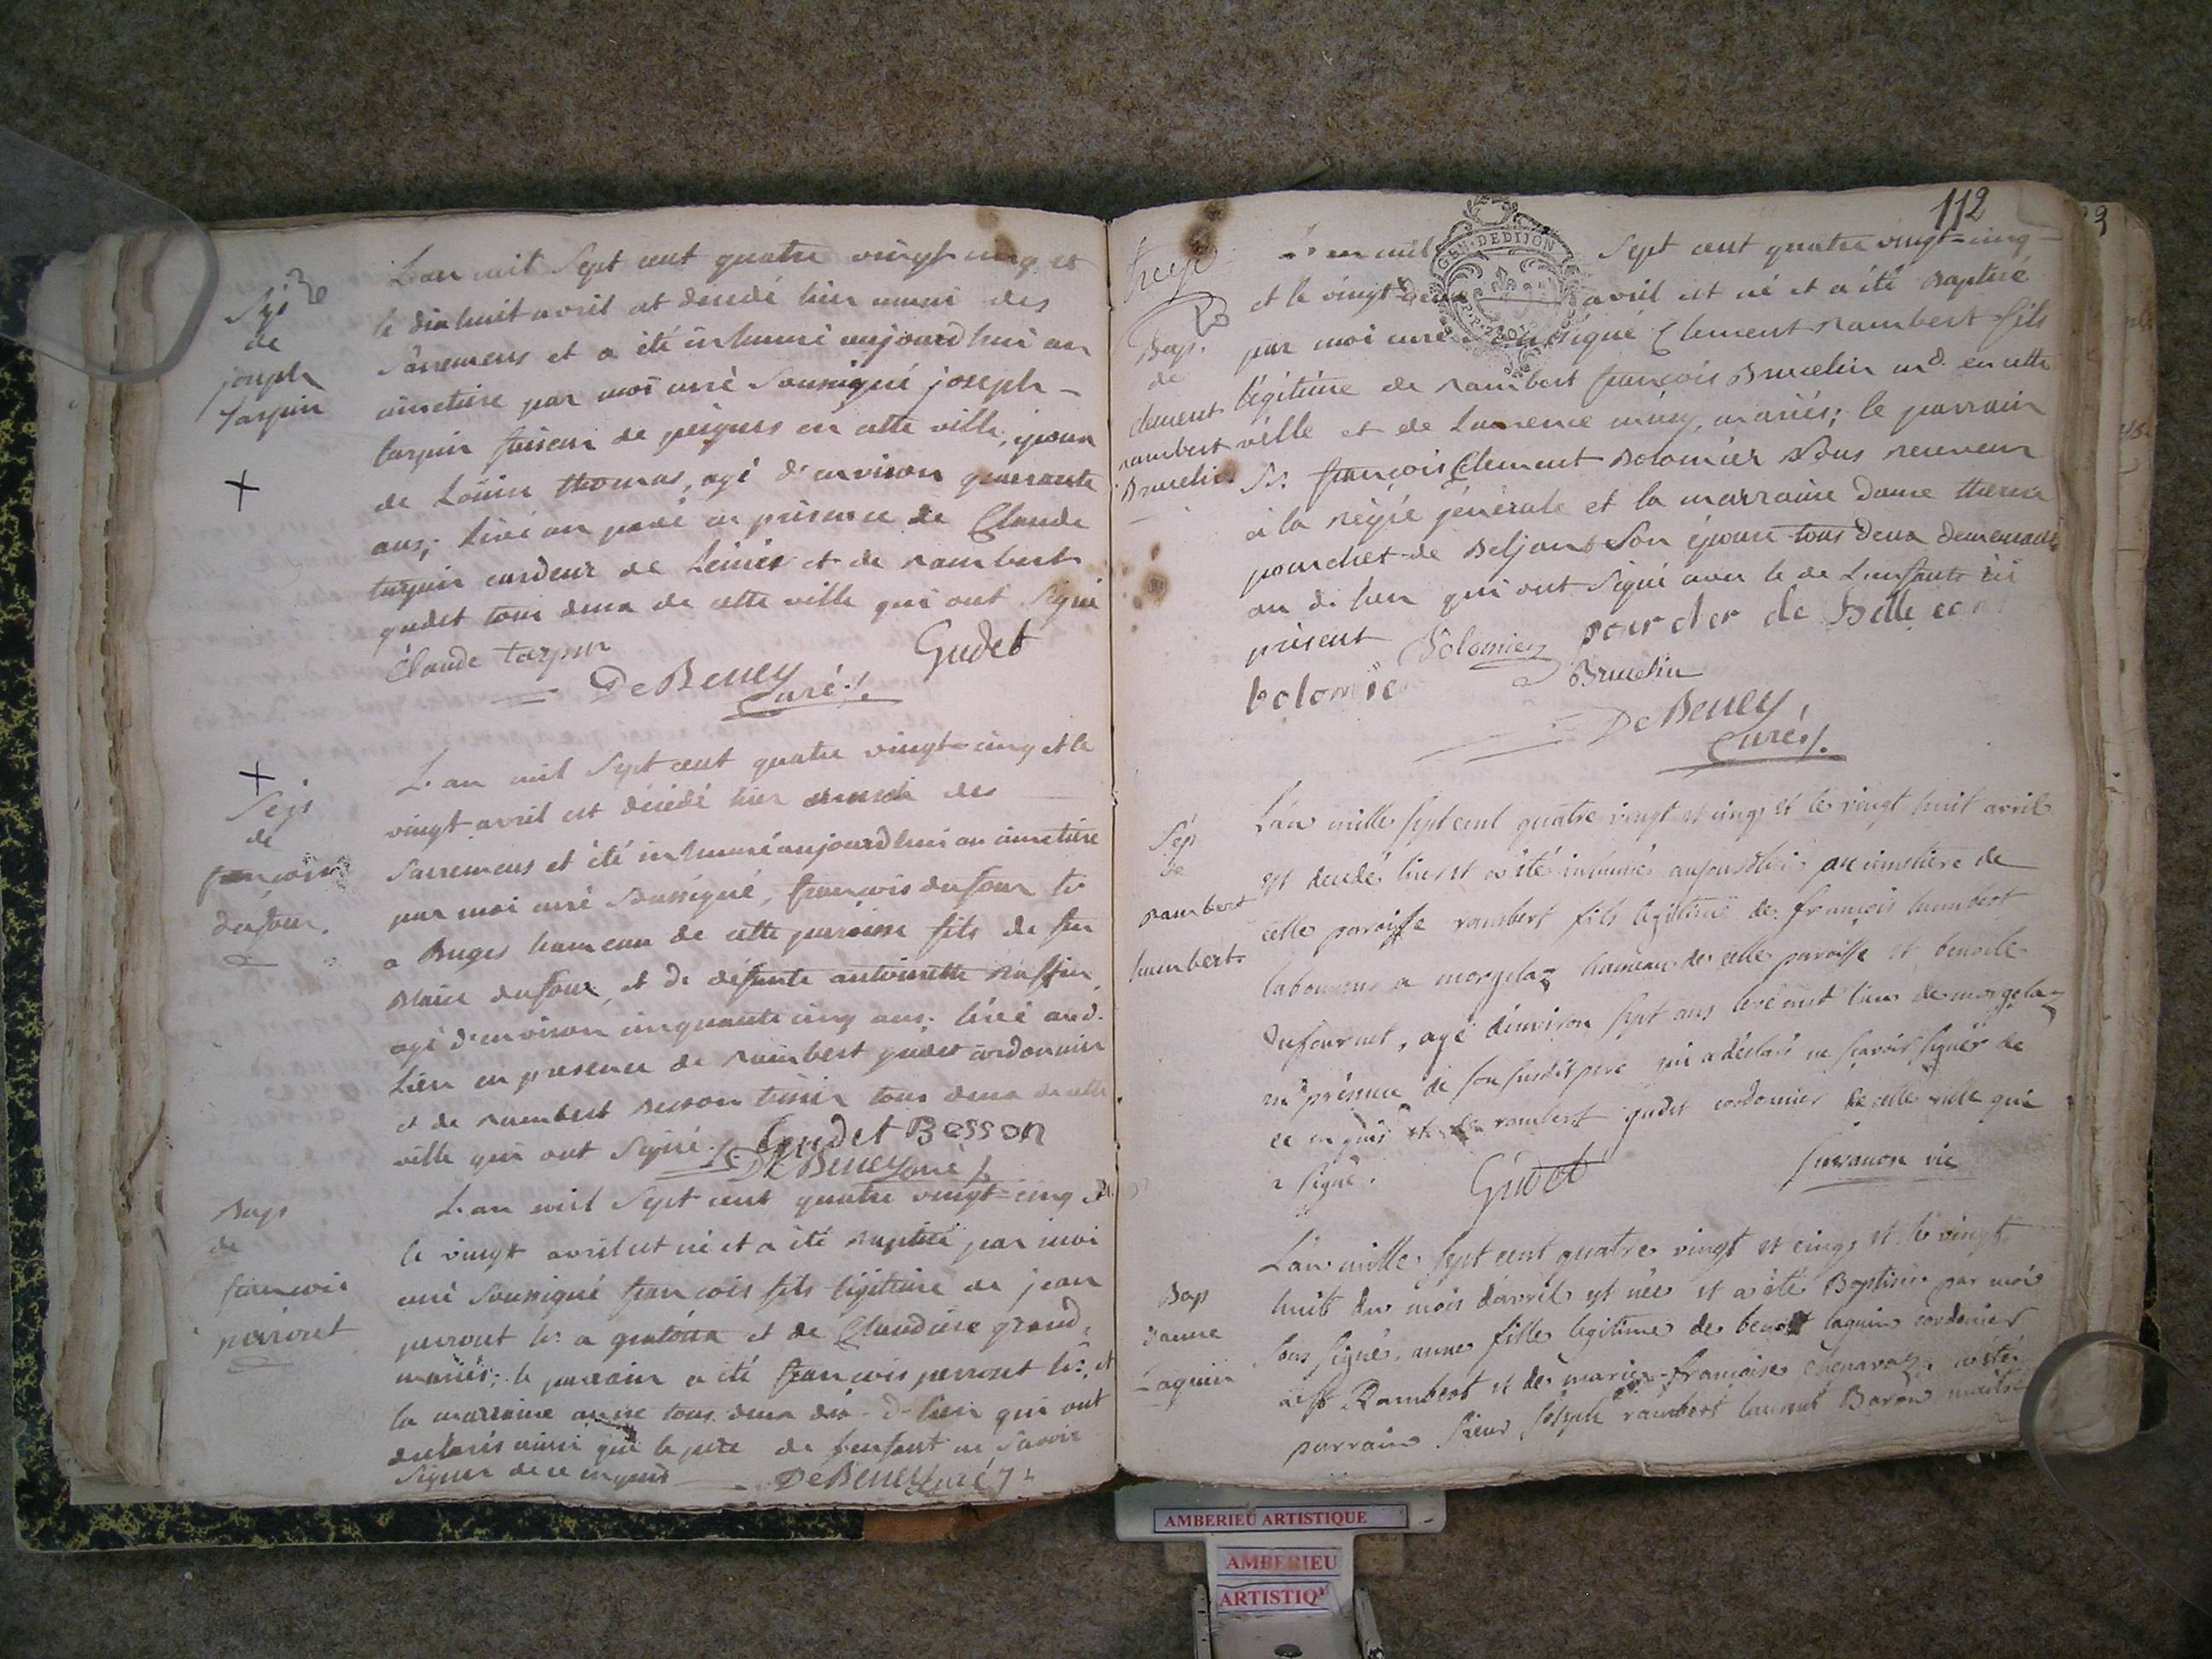 Sép
de
joseph
tarpin
L'an mil Sept cent quatre vingt cinq et
le dix huit avril est décédé hier muni des
Sacremens et a été inhumé aujourdhui au
cimetière par moi curé Soussigné joseph -
tarpin faiseur de peignes en cette ville, époux
de Louise thomas, agé d'environ quarante
ans; levé au pavé en présence de Claude
tarpin cardeur de Laines et de rambert
gudet tous deux de cette ville qui ont Signé
Claude tarpin
Gudet
De Beney
Curé ./.
Sép
de
francois
dufour.
L'an mil Sept cent quatre vingt=cinq et le
vingt avril est décédé hier des
Sacremens et été inhumé aujourdhui au cimetière
par moi curé Soussigné, francois dufour
a Buges hameau de cette paroisse fils de feu
Blaise dufour et de défunte antoinette Ruffin,
agé d'environ cinquante cinq ans; levé aud.
Lieu en presence de Rambert gudet cordonnier
et de rambert Besson tous deux de cette
ville qui ont Signé ./.
Gudet Besson
De Beney curé ./.
Bap
de
francois
perrout
L'an mil Sept cent quatre vingt=cinq et
le vingt avril est né et a été Baptisé par moi
curé Soussigné francois fils légitime de jean
perrout et de Claudine grand,
mariés; le parrain a été francois perrout et
la marraine anne tous deux dud. lieu qui ont
déclarés ainsi que le pere de l'enfant ne Savoir
Signer de ce enquis
De Beney curé ./.
112
treize
GEN. DE DIJON
Bap.
de
clement
rambert
Brucelin
L'an mil Sept cent quatre vingt=cinq
et le vingt avril est né et a été Baptisé
par moi curé Soussigné Clement Rambert fils
légitime de rambert françois Brucelin md. en cette
ville et de Laurence mariés; le parrain
Sr. françois Clement Bolomier Sous receveur
à la régie générale et la marraine Dame therese
pourcher de Son épouse tous deux demeurans
au d. lieu qui ont Signé avec le de L'enfant ici
présent
Bolomier
pourcher de Belle
Brucelin
bolomier
De Beney
Curé ./.
Sép
de
rambert
humbert
L'an mille sept cent quatre vingt et cinq et le vingt huit avril
est decedé hier et a été inhumé aujourdhui au cimetière de
cette paroisse rambert fils legitime de françois humbert
laboureur a morgelaz hameau de cette paroisse et benoite
Dufournet, agé denviron sept ans levé audt lieu de morgelaz
en présence de son susdit pere qui a déclaré ne sçavoir signer de
ce enquis et de rambert gudet cordonnier de cette ville qui
a signé.
Gudet
vic
Bap
D'anne
Laguin
L'an mille sept cent quatre vingt et cinq et le vingt
huit du mois d'avril est née et a été Baptisée par moi
sous signé, anne fille legitime de benoit laguin cordonier
a st Rambert et de marie-françoise a été
parrain sieur joseph rambert laurent Baron maitre
AMBERIEU ARTISTIQUE
AMBERIEU
ARTISTIQ